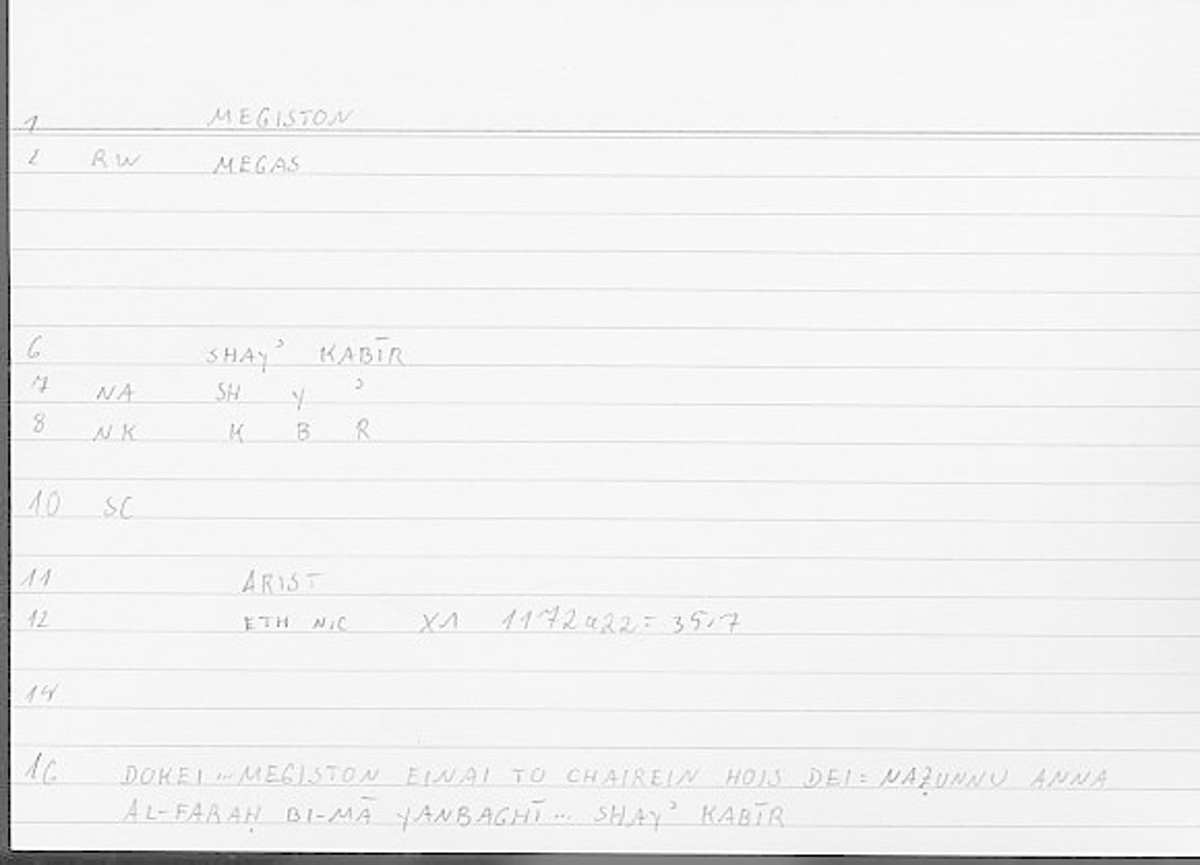 1 MEGISTON
2 RW MEGAS
6 SHAYʾ KABĪR
7 NA SH Y ʾ
8 NK K B R
10 SC
11 ARIST
12 ETH NIC X1 1172a22 = 35,7
14
16 DOKEI ... MEGISTON EINAI TO CHAIREIN HOIS DEI = NAẒUNNU ANNA
AL-FARAḤ BI-MĀ YANBAGHĪ ... SHAYʾ KABĪR